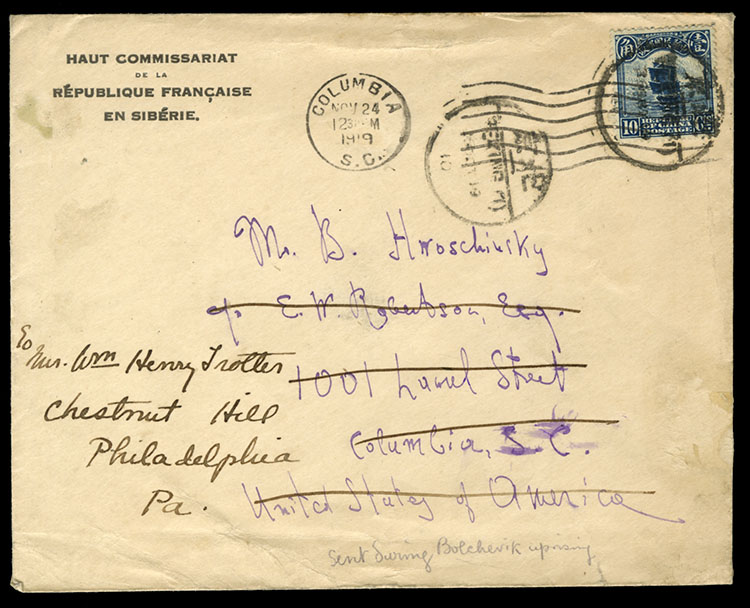 HAUT COMMISSARIAT
DE LA
RÉPUBLIQUE FRANÇAISE
EN SIBÉRIE.
COLUMBIA
NOV 24
1919
S.C.
PEKING
北京
角 壹
10 CTS
POSTAGE
Mr. B. Hwoschinsky
c/o E. W. Robertson, Esq.
1001 Laurel Street
Columbia, S. C.
United States of America
To
Mrs. Wm Henry Trotter
Chestnut Hill
Philadelphia
Pa.
Sent During Bolchevik uprising